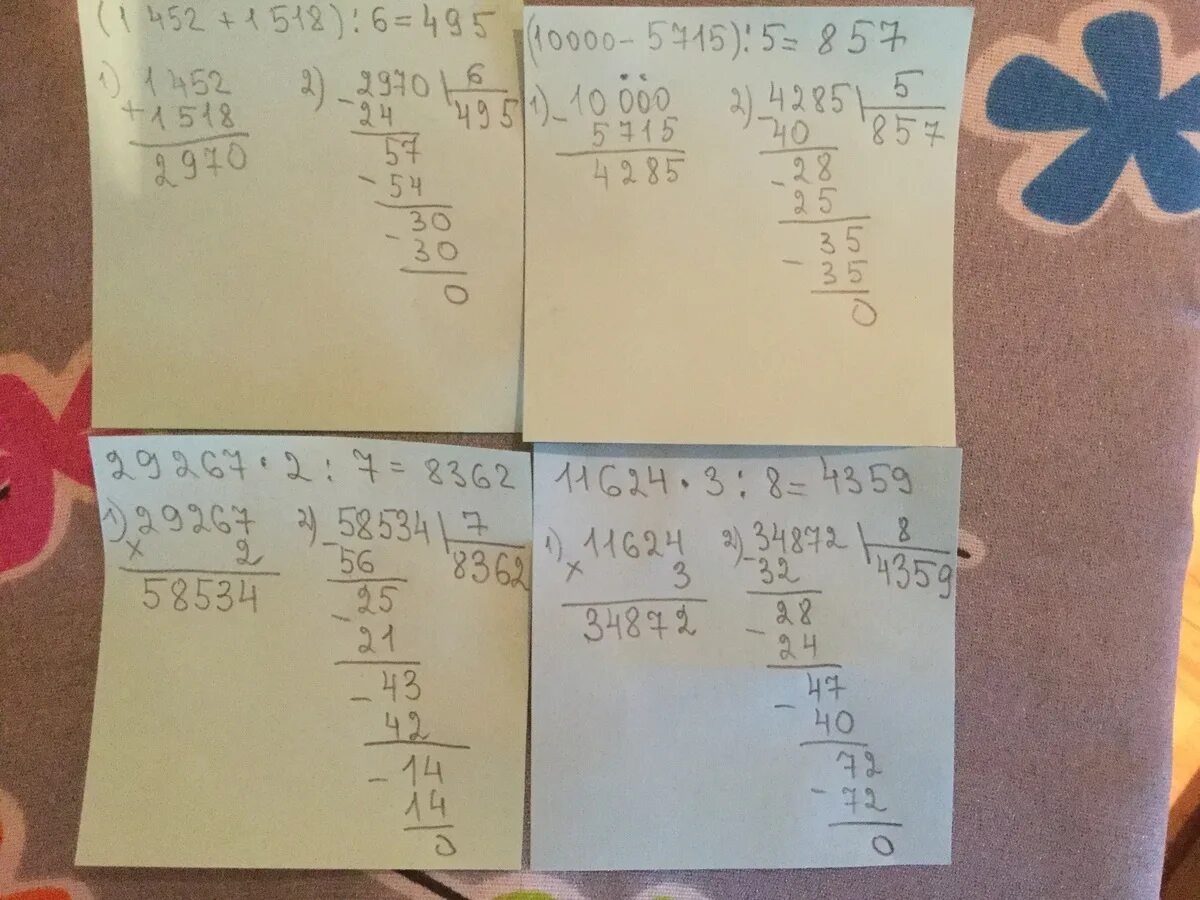 (1 452 + 1 518) : 6 = 495
1) 1 452
+ 1 518
2970
2) - 2970 6
24 495
57
- 54
30
- 30
0
(10000 - 5715) : 5 = 857
1) - 10 000
5715
4285
2) - 4285 5
40 857
- 28
25
35
- 35
0
29267 · 2 : 7 = 8362
1) 29267
x 2
58534
2) - 58534 7
56 8362
- 25
21
- 43
42
- 14
14
0
11624 · 3 : 8 = 4359
1) 11624
x 3
34872
2) - 34872 8
32 4359
- 28
24
- 47
40
72
- 72
0